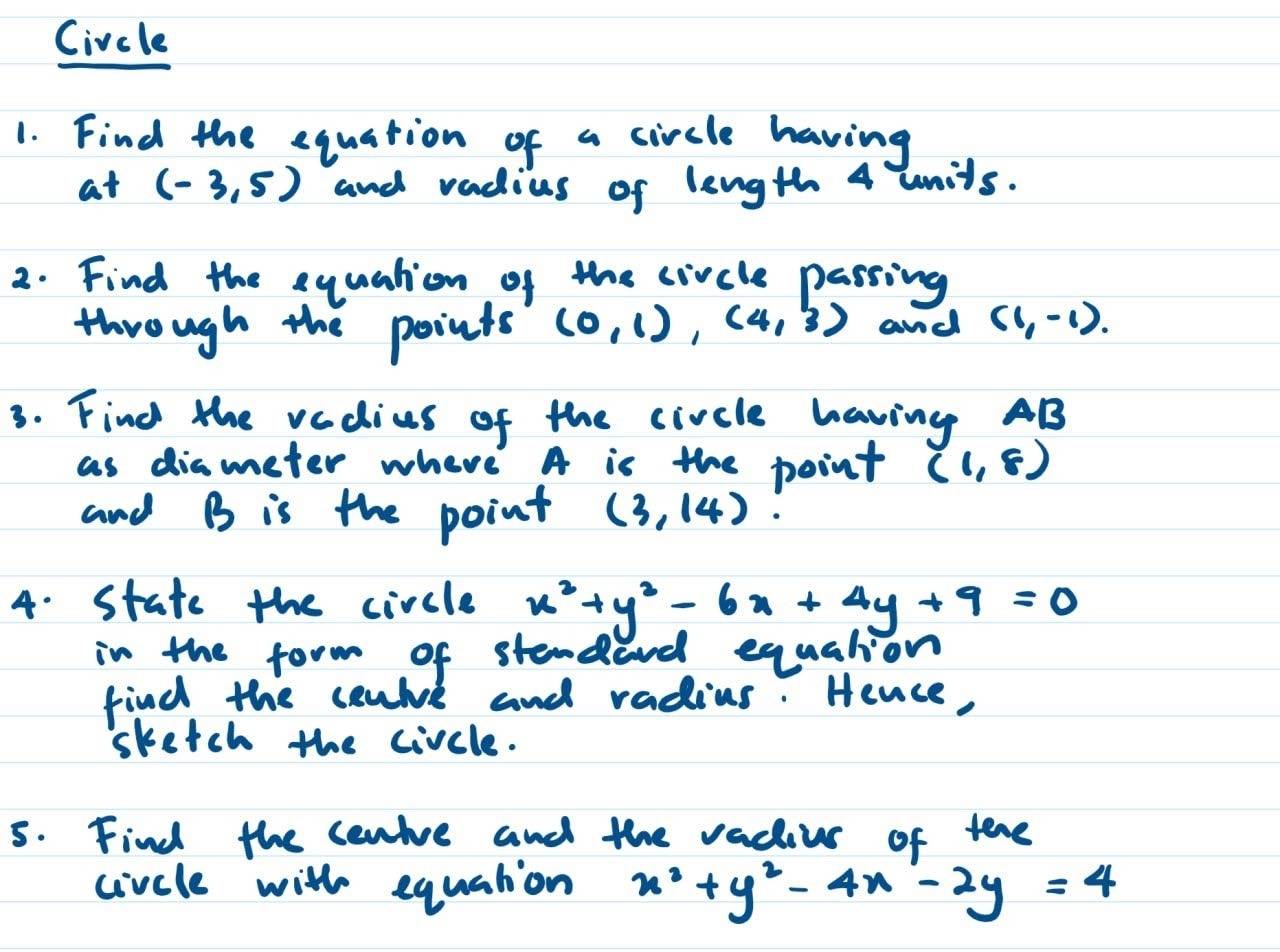 Circle
1. Find the equation of a circle having
at (-3,5) and radius of length 4 units.
2. Find the equation of the circle passing
through the points (0,1), (4,3) and (1,-1).
3. Find the radius of the circle having AB
as diameter where A is the point (1,8)
and B is the point (3,14).
4. State the circle x²+y²-6x+4y+9=0
in the form of standard equation
find the centre and radius. Hence,
sketch the circle.
5. Find the centre and the radius of the
circle with equation x²+y²-4x-2y=4